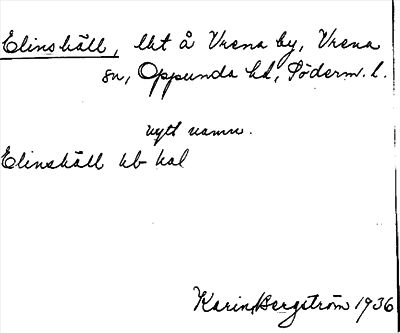 Elinshäll, lht å Vrena by, Vrena
sn, Oppunda hd, Söderm. l.
nytt namn.
Elinshäll hb kal
Karin Bergström 1936